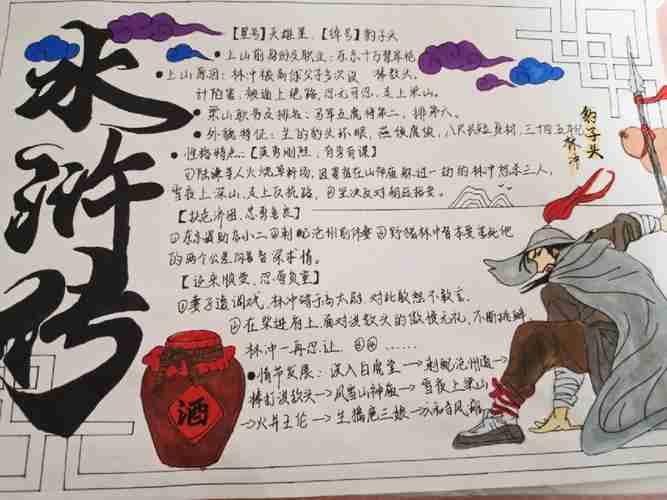 水浒传
【星号】天雄星、【绰号】豹子头
●上山前身份及职业：东京十万禁军枪
棒教头。
●上山原因：林中被高俅父子多次设
计陷害，被逼上绝路，忍无可忍，走上梁山。
●梁山职务及排名：马军五虎将第二，排第六。
●外貌特征：生的豹头环眼，燕颔虎须，八尺长短身材，三十四五年纪
豹子头
林冲
●性格特点：【英勇刚烈，有勇有谋】
①陆谦等人火烧草料场，且冒着在山神庙
林冲怒杀三人，
雪夜上深山，走上反抗路，②坚决反对朝廷招安。
【扶危济困，忠勇善良】
①在东京助店小二②刺配沧州
③野猪林中
他
的两个公差，
求情。
【逆来顺受、忍辱负重】
①妻子遭调戏，林冲碍于高太尉，对此敢怒不敢言.
②在柴进府上，面对洪教头的傲慢无礼，不断挑衅
林冲一再忍让.③④……
●情节发展：误入白虎堂→刺配沧州道→
棒打洪教头→风雪山神庙→雪夜上梁山
→火并王伦→生擒扈三娘→
酒